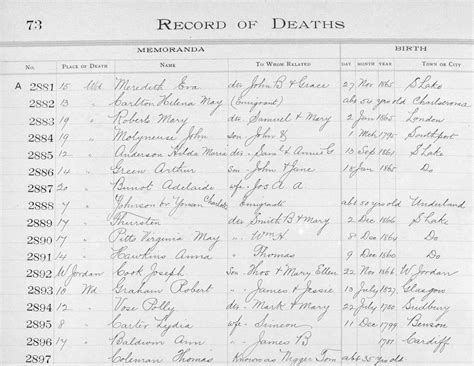 73 RECORD OF DEATHS
MEMORANDA BIRTH
No. PLACE OF DEATH NAME TO WHOM RELATED DAY MONTH YEAR TOWN OR CITY
A 2881 15 Wd Meredith Eva dau John B & Grace 27 Nov 1865 S Lake
2882 13 " Carlton Helena May (Emigrant) abt 54 yrs old
2883 19 " Roberts Mary dau Samuel & Mary 2 Jan 1865 London
2884 19 " Molyneuse John Son John & 1 Mch 1795 Southport
2885 12 " Anderson Hilda Maria dau Sam & Annie G. 13 Sep 1861 S Lake
2886 14 " Green Arthur Son John & Jane 18 Jan 1865 Do
2887 20 " Benot Adelaide wfe Jos A A
2888 7 " Johnson by Yowan Emigrants abt 50 years old
2889 17 " Thurston dau Smith B & Mary 2 Dec 1864 S Lake
2890 17 " Pitts Virginia May " Wm H. 8 Dec 1864 Do
2891 14 " Hawkins Anna " Thomas 9 Dec 1860 Do
2892 W Jordan Cook Joseph Son Thos & Mary Ellen 22 Nov 1864 W Jordan
2893 18 Wd Graham Robert " James & Jessie 13 July 1827 Glasgow
2894 12 " Vose Polly dau Mark & Mary 22 July 1780 Sudbury
2895 8 " Carter Lydia wfe Simeon 11 Dec 1799 Benson
2896 14 " Baldwin Ann " James B 1781 Cardiff
2897 Coleman Thomas Known as Nigger Tom abt 35 years old